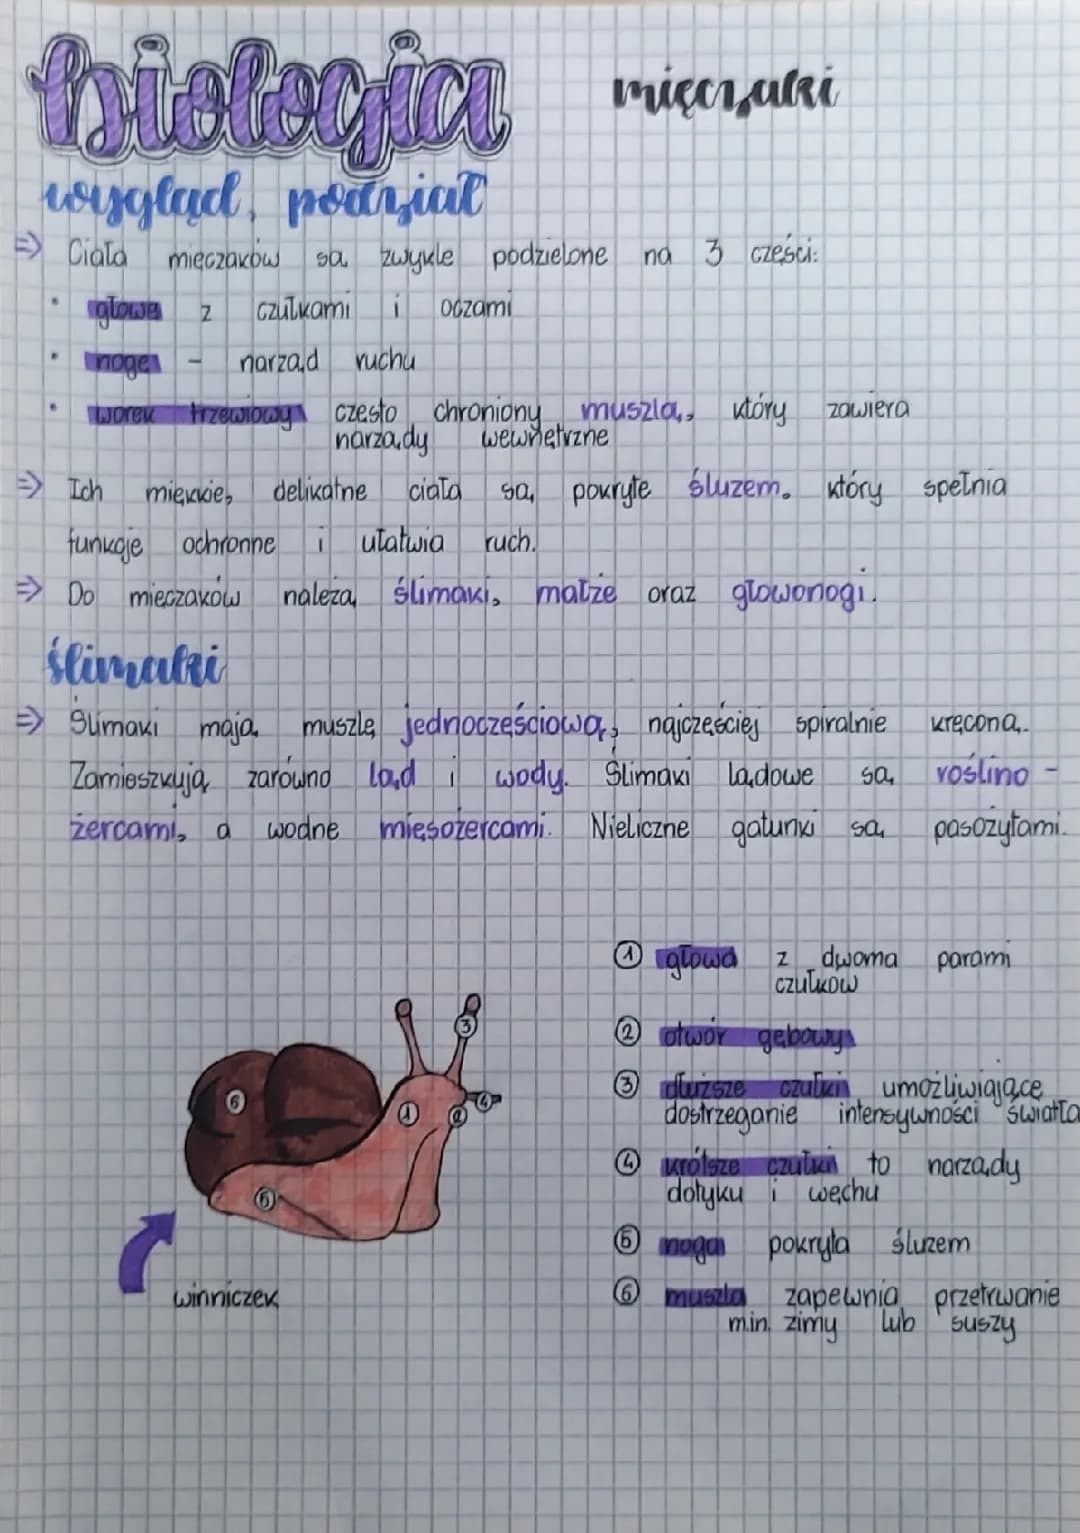 biologia
mięczaki
wygląd, podział
⇒ Ciała mięczaków są zwykle podzielone na 3 części:
• głowę z czułkami i oczami
• nogę - narząd ruchu
• worek trzewiowy często chroniony muszlą, który zawiera
narządy wewnętrzne
⇒ Ich miękkie, delikatne ciała są pokryte śluzem, który spełnia
funkcje ochronne i ułatwia ruch.
⇒ Do mięczaków należą ślimaki, małże oraz głowonogi.
ślimaki
⇒ Ślimaki mają muszlę jednoczęściową, najczęściej spiralnie kręconą.
Zamieszkują zarówno ląd i wody. Ślimaki lądowe są roślino-
żercami, a wodne mięsożercami. Nieliczne gatunki są pasożytami.
1 głowa z dwoma parami
czułków
2 otwór gębowy
3 dłuższe czułki umożliwiające
dostrzeganie intensywności światła
4 krótsze czułki to narządy
dotyku i węchu
5 noga pokryta śluzem
6 muszla zapewnia przetrwanie
m.in. zimy lub suszy
3
6
1
2
4
5
winniczek